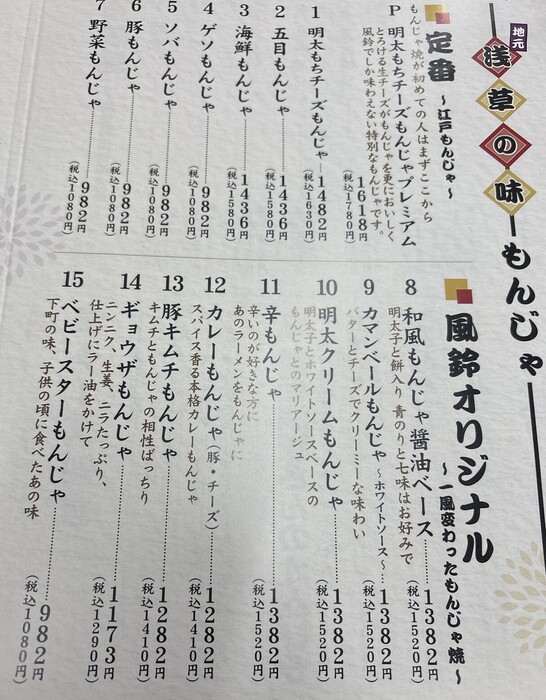 地元
浅草の味 もんじゃ
定番 〜江戸もんじゃ〜
もんじゃ焼が初めての人はまずここから
P 明太もちチーズもんじゃプレミアム
とろける生チーズがもんじゃを更においしく
風鈴でしか味わえない特別なもんじゃです。
1618円
(税込1780円)
1 明太もちチーズもんじゃ 1482円
(税込1630円)
2 五目もんじゃ 1436円
(税込1580円)
3 海鮮もんじゃ 1436円
(税込1580円)
4 ゲソもんじゃ 982円
(税込1080円)
5 ソバもんじゃ 982円
(税込1080円)
6 豚もんじゃ 982円
(税込1080円)
7 野菜もんじゃ 982円
(税込1080円)
風鈴オリジナル
〜一風変わったもんじゃ焼〜
8 和風もんじゃ醤油ベース 1382円
明太子と餅入り 青のりと七味はお好みで
(税込1520円)
9 カマンベールもんじゃ〜ホワイトソース〜 1382円
バターとチーズでクリーミーな味わい
(税込1520円)
10 明太クリームもんじゃ 1382円
明太子とホワイトソースベースの
もんじゃとのマリアージュ
(税込1520円)
11 辛もんじゃ 1382円
辛いのが好きな方に
あのラーメンをもんじゃに
(税込1520円)
12 カレーもんじゃ(豚・チーズ) 1282円
スパイス香る本格カレーもんじゃ
(税込1410円)
13 豚キムチもんじゃ 1282円
キムチともんじゃの相性ばっちり
(税込1410円)
14 ギョウザもんじゃ 1173円
ニンニク、生姜、ニラたっぷり、
仕上げにラー油をかけて
(税込1290円)
15 ベビースターもんじゃ 982円
下町の味、子供の頃に食べたあの味
(税込1080円)